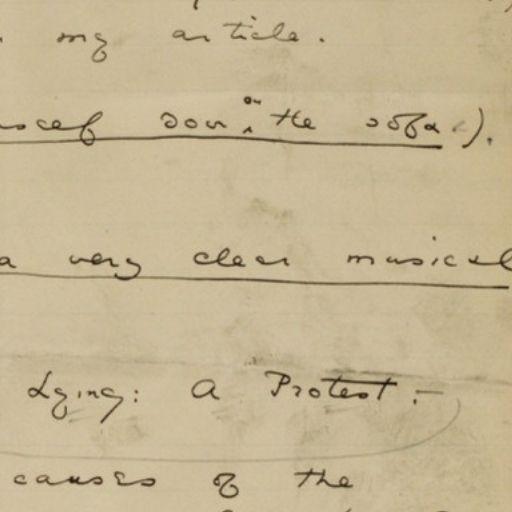 my article.
down on the sofa).
a very clear musical
Lying: A Protest:—
causes of the